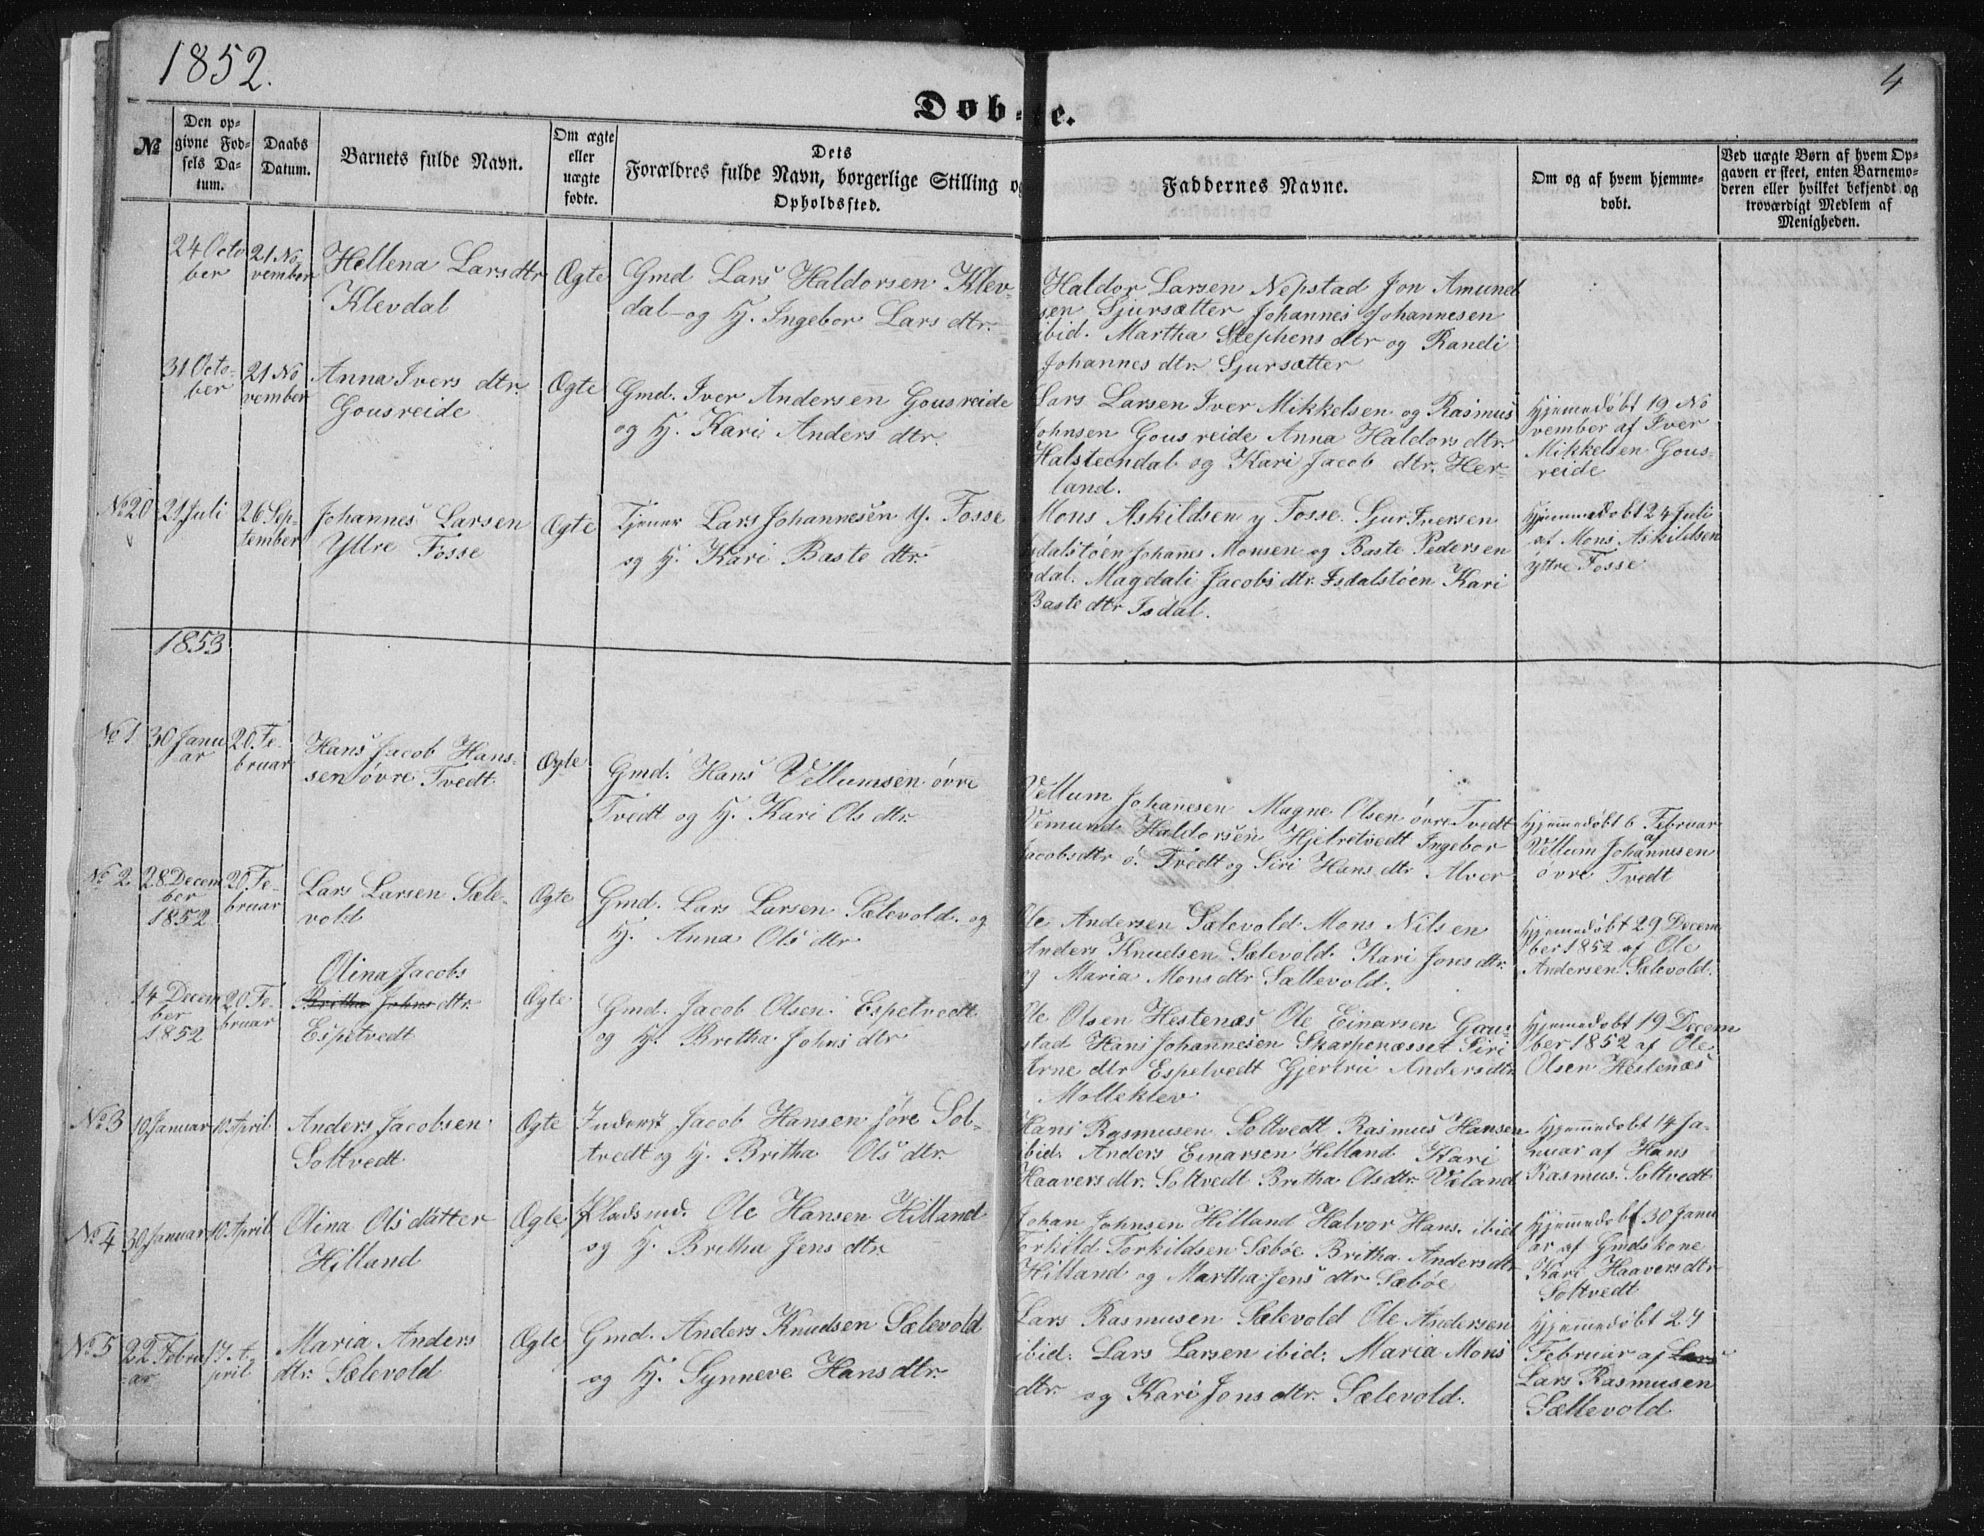 1852.
4
Døbte.
№
Den op-
givne Fød-
sels Da-
tum.
Daabs
Datum.
Barnets fulde Navn.
Om ægte
eller
uægte
fødte.
Dets
Forældres fulde Navn, borgerlige Stilling og
Opholdssted.
Faddernes Navne.
Om og af hvem hjemme-
døbt.
Ved uægte Børn af hvem Op-
gaven er skeet, enten Barnemo-
deren eller hvilket bekjendt og
troværdigt Medlem af
Menigheden.
24 Octo
ber
21 No
vember
Hellena Lars dtr
Klevdal
Ægte
Gmd Lars Haldorsen Klev-
dal og H. Ingebor Lars dtr.
Haldor Larsen Nepstad Jon Amund
sen Sjursætter Johannes Johannesen
ibid. Martha Stephens dtr og Randi
Johannes dtr. Sjursætter
31 Octo-
ber
21 No
vember
Anna Ivers dtr.
Gousreide
Ægte
Gmd. Iver Andersen Gousreide
og H. Kari Anders dtr.
Lars Larsen Iver Mikkelsen og Rasmus
Johnsen Gousreide Anna Haldors dtr.
Halsteendal og Kari Jacob dtr. Her-
land.
Hjemmedøbt 19 No
vember af Iver
Mikkelsen Gous-
reide
№ 20
21 Juli
26 Sep-
tember
Johannes Larsen
Yttre Fosse
Ægte
Tjener Lars Johannesen y. Fosse
og H. Kari Baste dtr.
Mons Askildsen y Fosse. Sjur Iversen
Isdalstøen Johannes Monsen og Baste Pedersen
Isdal. Magdali Jacobs dtr. Isdalstøen Kari
Baste dtr Isdal.
Hjemmedøbt 24 Juli
af Mons Askildsen
yttre Fosse
1853
№ 1
30 Janu
ar
20. Fe-
bruar
Hans Jacob Hans-
sen øvre Tvedt
Ægte
Gmd. Hans Vellumsen øvre
Tvedt og H. Kari Ols dtr.
Vellum Johannesen Magne Olsen øvre Tvedt
Vemund Haldorsen Hjelretvedt Ingebor
Jacobsdtr ø. Tvedt og Siri Hans dtr Alver
Hjemmedøbt 6 Februar
af
Vellum Johannesen
øvre Tvedt
№ 2
28 Decem
ber
1852
20 Fe-
bruar
Lars Larsen Sæle-
vold
Ægte
Gmd. Lars Larsen Sælevold. og
H. Anna Ols dtr
Ole Andersen Sælevold Mons Nilsen
Anders Knudsen Sælevold. Kari Jons dtr.
og Maria Mons dtr Sællevold.
Hjemmedøbt 29 Decem
ber 1852 af Ole
Andersen Sælevold.
14 Decem
ber
1852
20 Fe-
bruar
Olina Jacobs
Britha Johns dtr.
Espetvedt
Ægte
Gmd. Jacob Olsen. Espetvedt
og H. Britha Johns dtr
Ole Olsen Hestenæs Ole Einarsen Gau-
stad Hans Johannesen Skarpenæsset Siri
Arne dtr Espetvedt Gjertru Anders dtr
Molleklev
Hjemmedøbt 19 Decem
ber 1852 af Ole
Olsen Hestenæs
№ 3
10 Januar
10 April
Anders Jacobsen
Soltvedt
Ægte
Inderst Jacob Hansen søre Sol-
tvedt og H. Britha Ols dtr.
Hans Rasmusen Soltvedt Rasmus Hansen
ibid. Anders Einarsen Hilland Kari
Haavers dtr. Soltvedt Britha Olsdtr. Væland
Hjemmedøbt 14 Ja-
nuar af Hans
Rasmus. Soltvedt
№ 4
30 Januar
10 April
Olina Ols datter
Hilland
Ægte
Pladsmd. Ole Hansen Hilland
og H. Britha Jens dtr
Johan Johnsen Hilland Halvor Hans. ibid
Torkild Torkildsen Sæbøe Britha Anders dtr
Hilland og Martha Jens dtr Sæbøe
Hjemmedøbt 30 Janu
ar af Gmds kone
Kari Haavers dtr
Soltvedt
№ 5
22 Febru
-ar
17 A-
pril
Maria Anders
dtr. Sælevold
Ægte
Gmd. Anders Knudsen Sælevold
og H. Synneve Hans dtr.
Lars Rasmusen Sælevold Ole Andersen
ibid. Lars Larsen ibid. Maria Mons
dtr. og Kari Jons dtr. Sælevold.
Hjemmedøbt 24
Februar af Lars
Lars Rasmusen
Sællevold